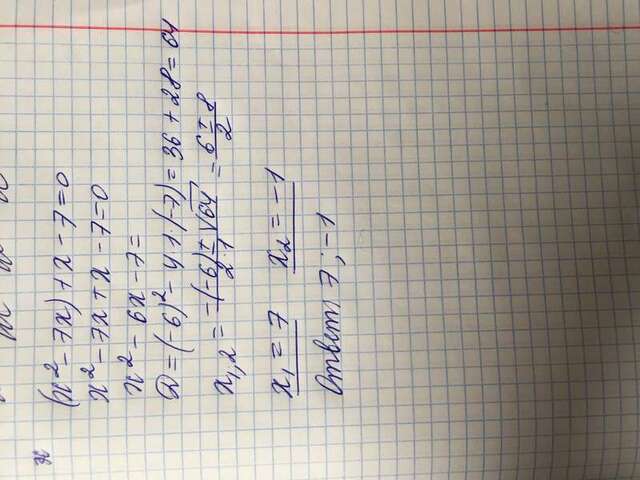 ж
(x² - 7x) + x - 7 = 0
x² - 7x + x - 7 = 0
x² - 6x - 7 =
D = (-6)² - 4·1·(-7) = 36 + 28 = 64
x₁,₂ = (-(-6) ± √64)/(2·1) = (6 ± 8)/2
x₁ = 7 x₂ = -1
Ответ: 7; -1